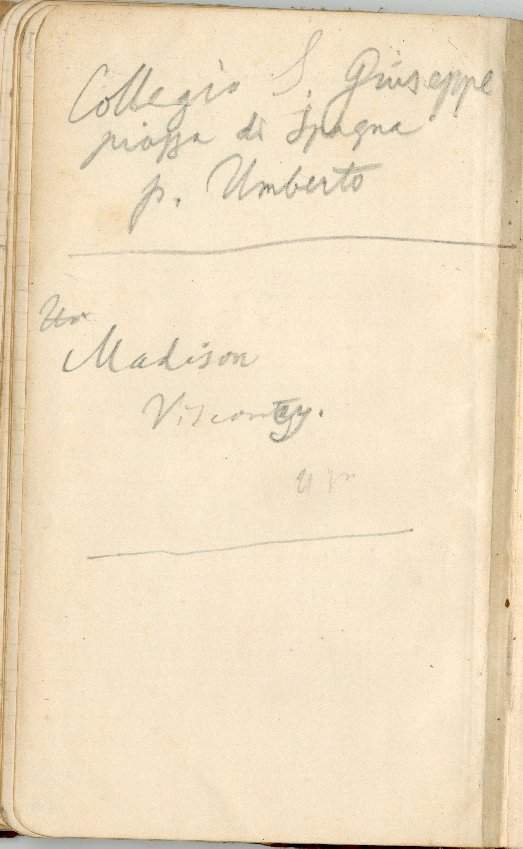 Collegio S. Giuseppe
piazza di Spagna
p. Umberto
Un
Madison